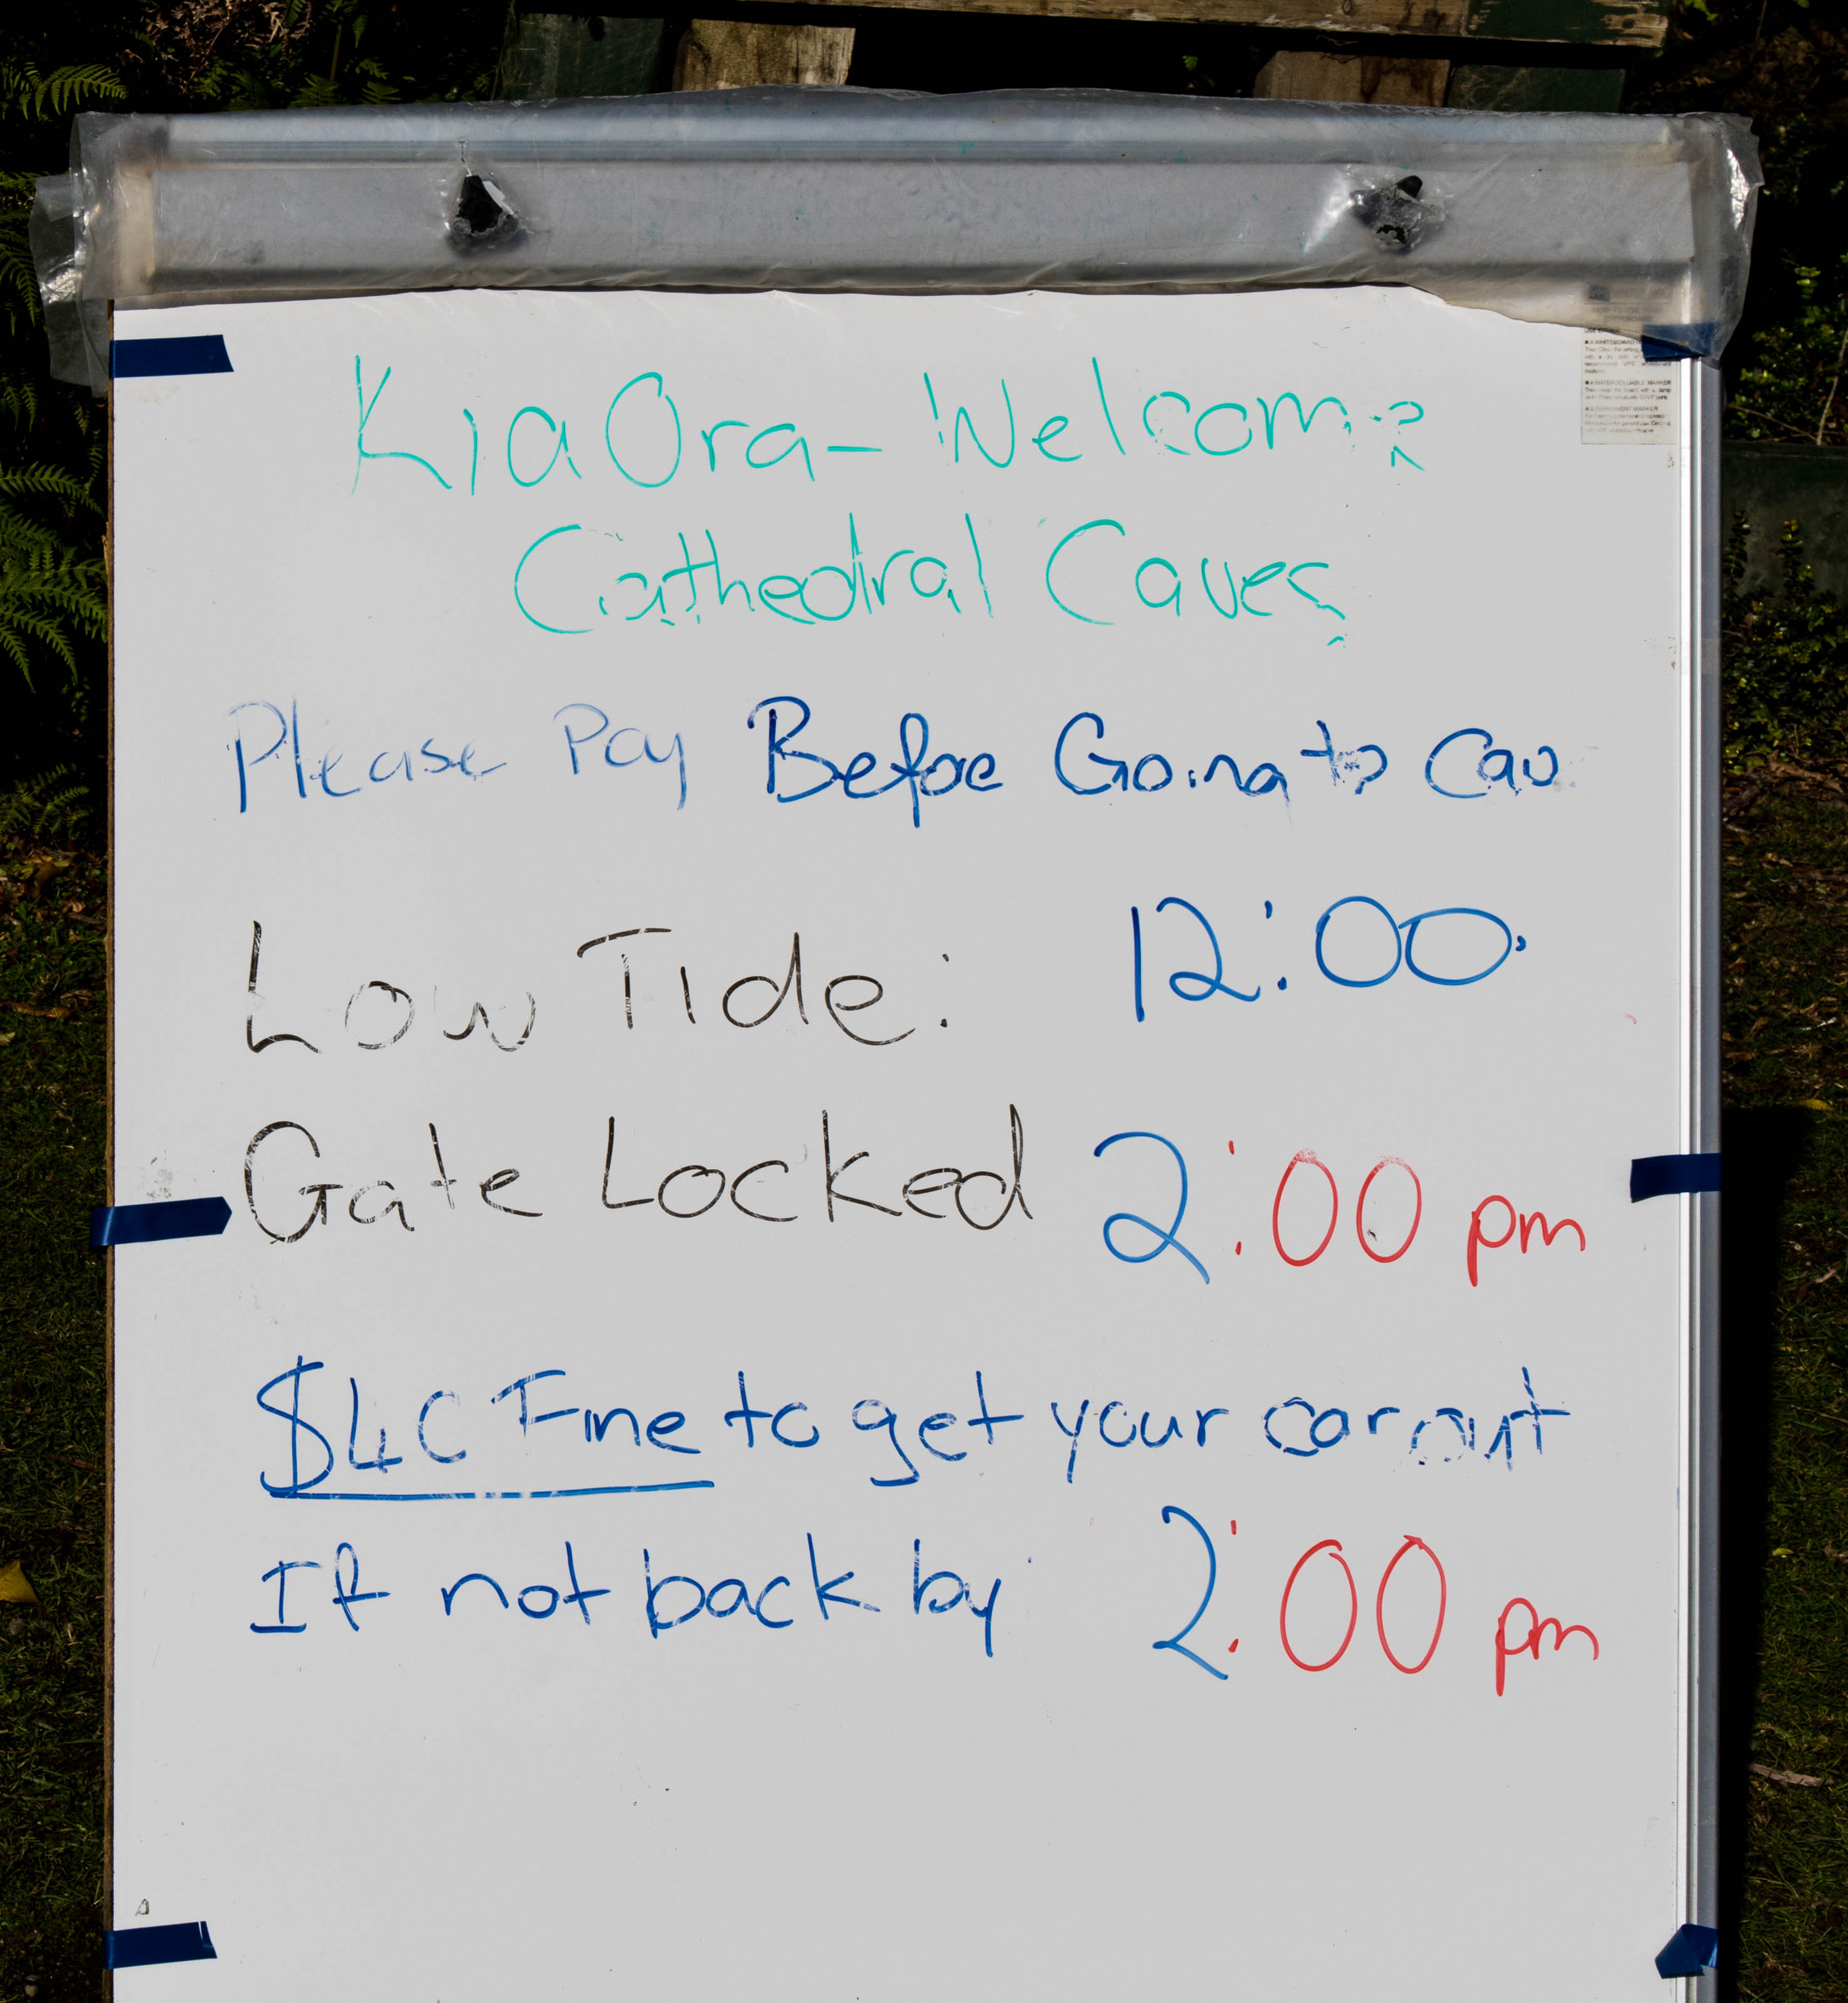 Kia Ora - Welcome
Cathedral Caves
Please Pay Before Going to Cav
Low Tide: 12:00
Gate Locked 2:00 pm
$40 Fine to get your car out
If not back by 2:00 pm